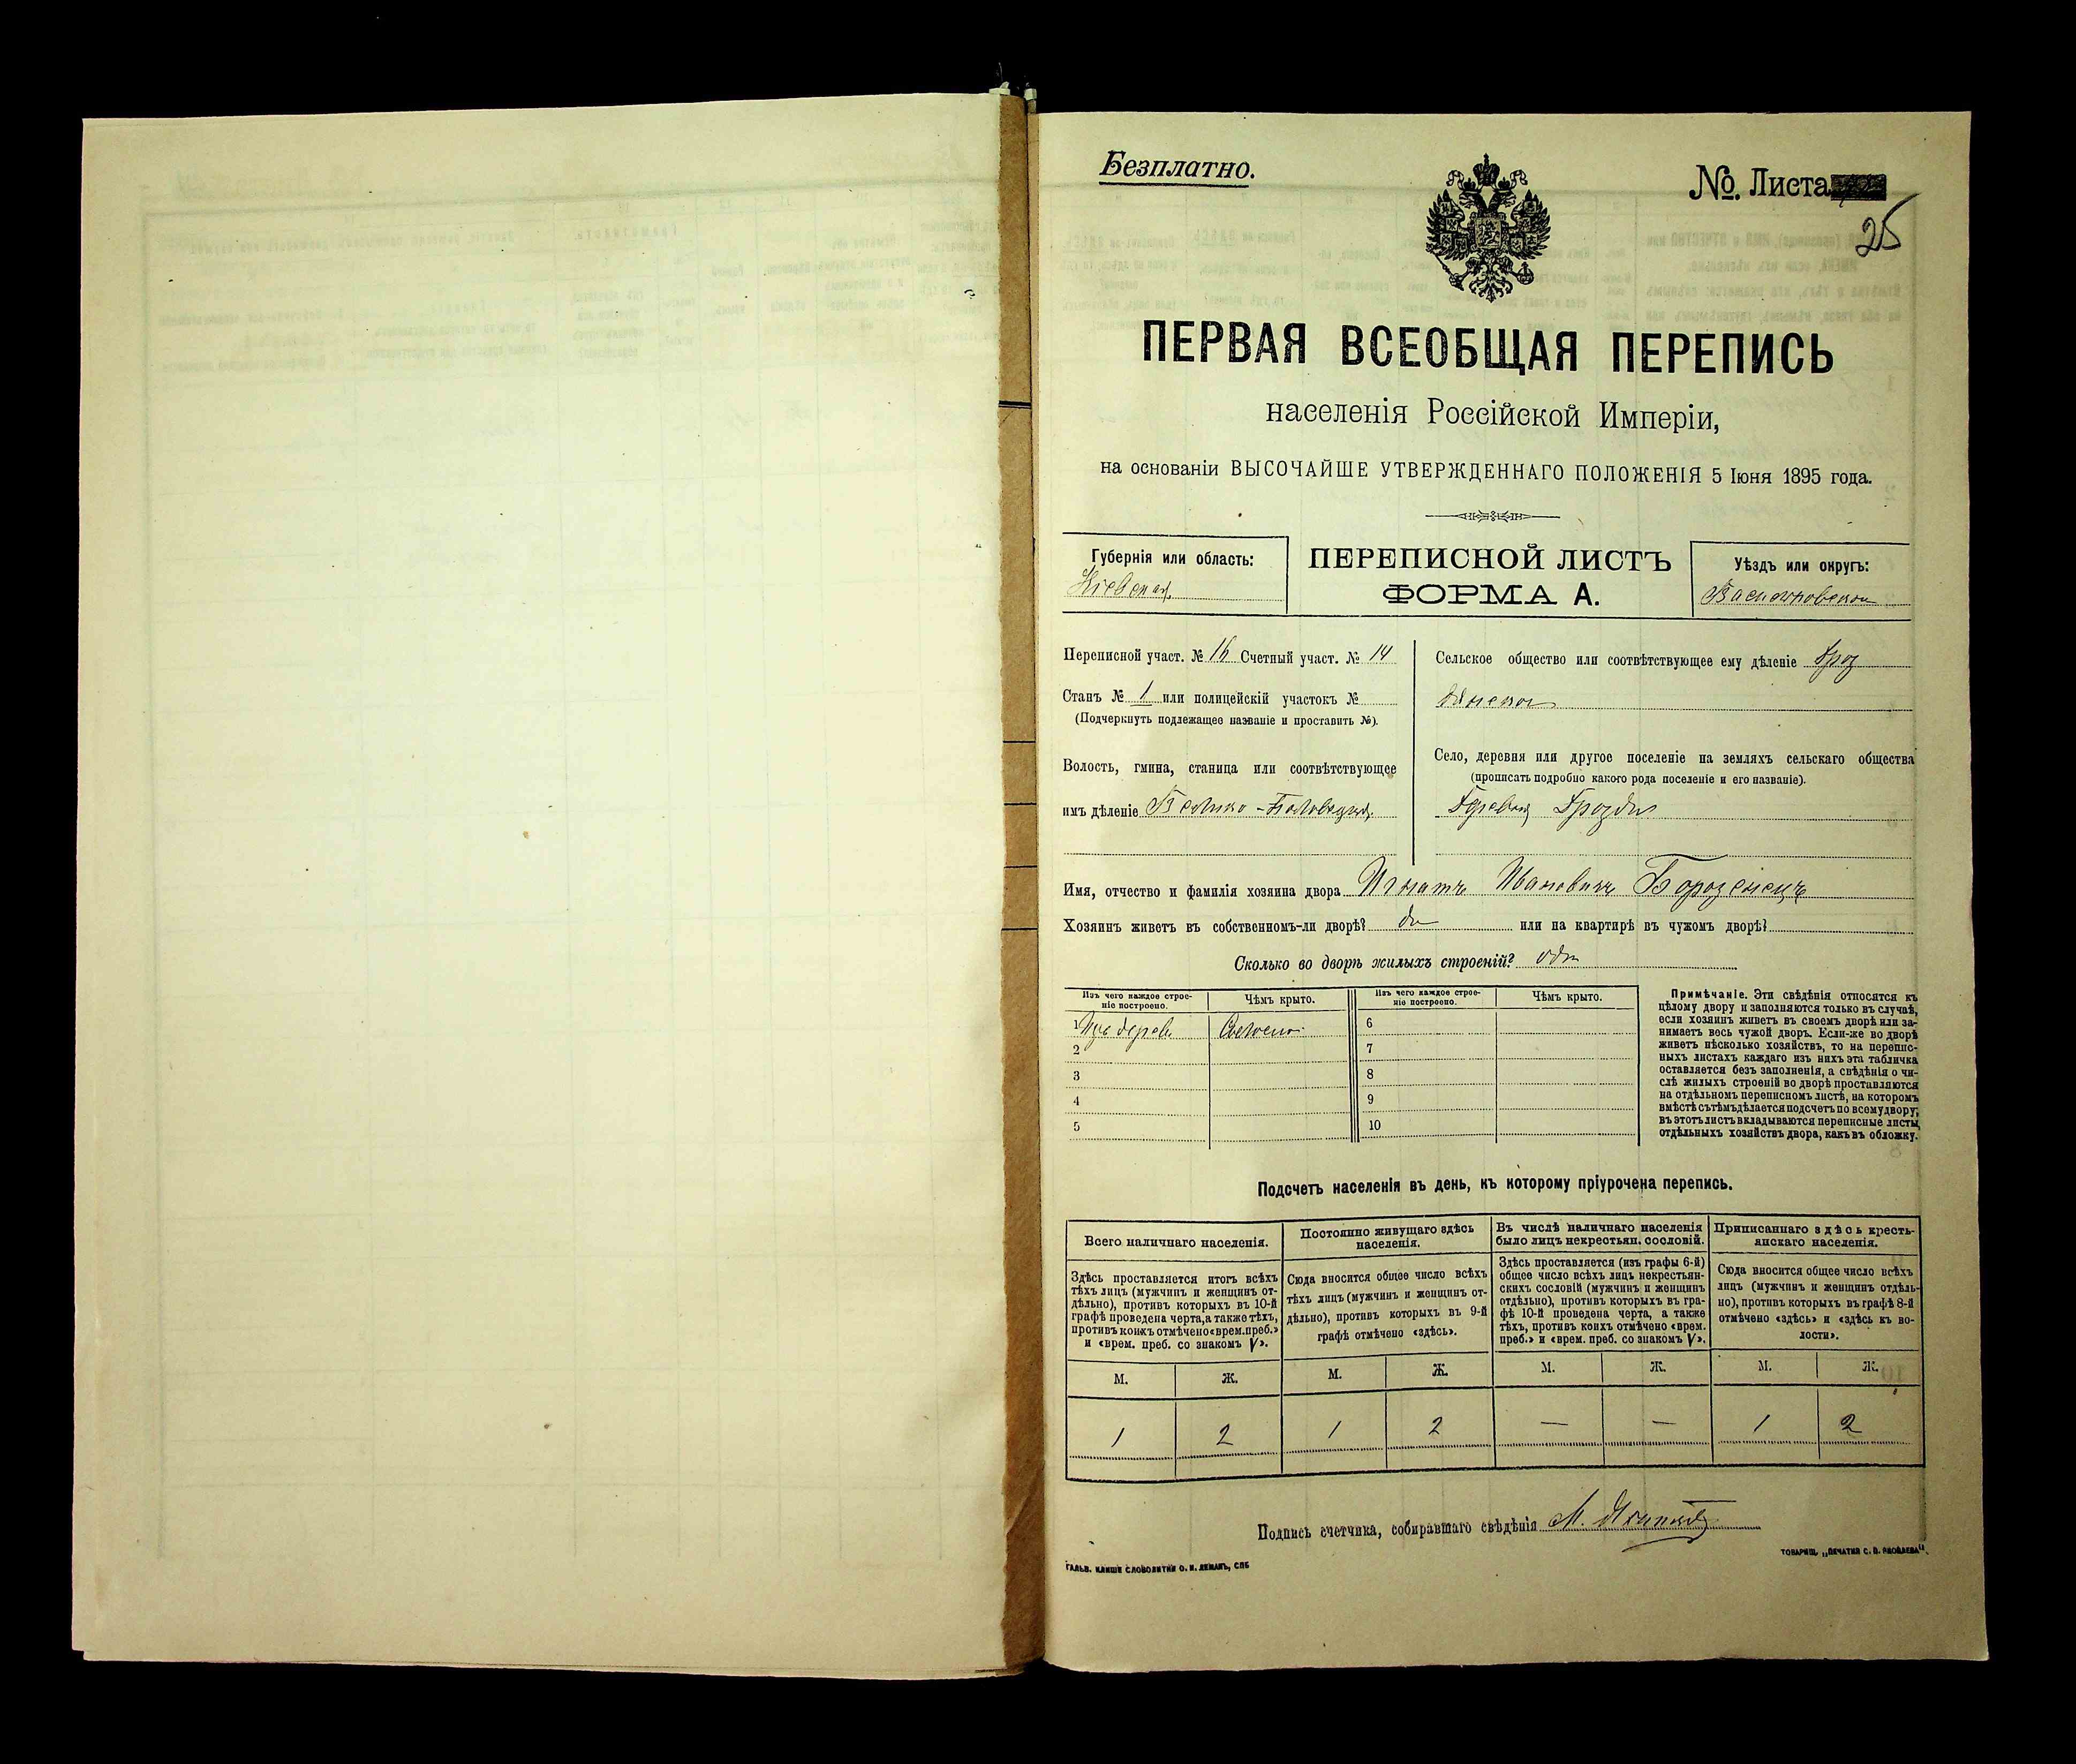 Безплатно.
№. Листа
25
ПЕРВАЯ ВСЕОБЩАЯ ПЕРЕПИСЬ
населенія Россійской Имперіи,
на основаніи ВЫСОЧАЙШЕ УТВЕРЖДЕННАГО ПОЛОЖЕНІЯ 5 Іюня 1895 года.
Губернія или область:
Кіевская
ПЕРЕПИСНОЙ ЛИСТЪ
ФОРМА А.
Уѣздъ или округъ:
Переписной участ. № 16 Счетный участ. № 14
Станъ № 1 или полицейскій участокъ №
(Подчеркнуть подлежащее названіе и проставить №).
Волость, гмина, станица или соотвѣтствующее
имъ дѣленіе Велико-Половецкая
Сельское общество или соотвѣтствующее ему дѣленіе Гроз
дянское
Село, деревня или другое поселеніе на земляхъ сельскаго общества
(прописать подробно какого рода поселеніе и его названіе).
Деревня
Имя, отчество и фамилія хозяина двора Игнатъ Ивановичъ
Хозяинъ живетъ въ собственномъ-ли дворѣ? да или на квартирѣ въ чужомъ дворѣ?
Сколько во дворѣ жилыхъ строеній?
Изъ чего каждое строе-
ніе построено.
Чѣмъ крыто.
Изъ чего каждое строе-
ніе построено.
Чѣмъ крыто.
1 Изъ дерева Соломою 6
2 7
3 8
4 9
5 10
Примѣчаніе. Эти свѣдѣнія относятся къ
цѣлому двору и заполняются только въ случаѣ,
если хозяинъ живетъ въ своемъ дворѣ или за-
нимаетъ весь чужой дворъ. Если-же во дворѣ
живетъ нѣсколько хозяйствъ, то на перепис-
ныхъ листахъ каждаго изъ нихъ эта табличка
оставляется безъ заполненія, а свѣдѣнія о чи-
слѣ жилыхъ строеній во дворѣ проставляются
на отдѣльномъ переписномъ листѣ, на которомъ
вмѣстѣ съ тѣмъ дѣлается подсчетъ по всему двору;
въ этотъ листъ вкладываются переписные листы,
отдѣльныхъ хозяйствъ двора, какъ въ обложку.
Подсчетъ населенія въ день, къ которому пріурочена перепись.
Всего наличнаго населенія.
Здѣсь проставляется итогъ всѣхъ
тѣхъ лицъ (мужчинъ и женщинъ от-
дѣльно), противъ которыхъ въ 10-й
графѣ проведена черта, а также тѣхъ,
противъ коихъ отмѣчено «врем. преб.»
и «врем. преб. со знакомъ V».
Постоянно живущаго здѣсь
населенія.
Сюда вносится общее число всѣхъ
тѣхъ лицъ (мужчинъ и женщинъ от-
дѣльно), противъ которыхъ въ 9-й
графѣ отмѣчено «здѣсь».
Въ числѣ наличнаго населенія
было лицъ некрестьян. сословій.
Здѣсь проставляется (изъ графы 6-й)
общее число всѣхъ лицъ некрестьян-
скихъ сословій (мужчинъ и женщинъ
отдѣльно), противъ которыхъ въ гра-
фѣ 10-й проведена черта, а также
тѣхъ, противъ коихъ отмѣчено «врем.
преб.» и «врем. преб. со знакомъ V».
Приписаннаго здѣсь кресть-
янскаго населенія.
Сюда вносится общее число всѣхъ
лицъ (мужчинъ и женщинъ отдѣль-
но), противъ которыхъ въ графѣ 8-й
отмѣчено «здѣсь» и «здѣсь къ во-
лости».
М. Ж. М. Ж. М. Ж. М. Ж.
1 2 1 2 — — 1 2
Подпись счетчика, собиравшаго свѣдѣнія М.
ГАЛЬВ. КЛИШЕ СЛОВОЛИТНИ О. И. ЛЕМАНЪ, СПБ
ТОВАРИЩ. „ПЕЧАТНЯ С. П. ЯКОВЛЕВА".